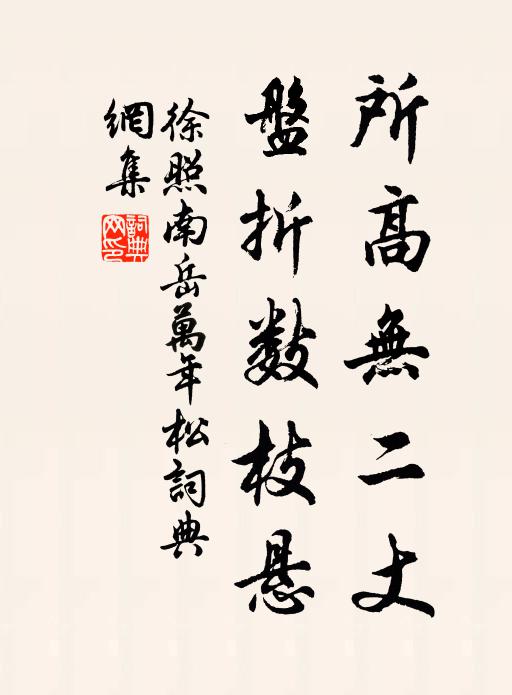 所高無二丈
盤折数枝悬
徐照南岳萬年松詞典
網集
詞典網印